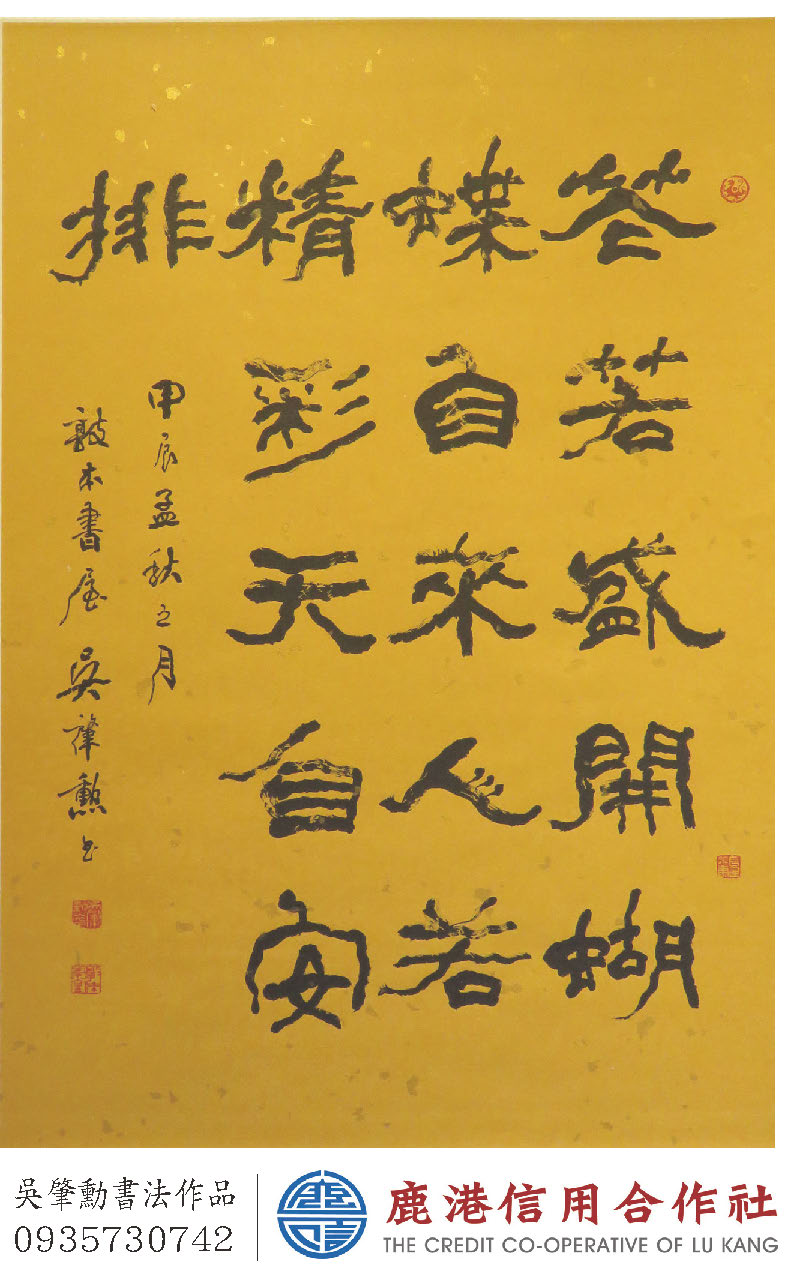 花若盛開蝴
蝶自來人若
精彩天自安
排
甲辰孟秋之月
敦本書屋吳肇勳書
吳肇勳書法作品
0935730742
鹿港信用合作社
THE CREDIT CO-OPERATIVE OF LU KANG